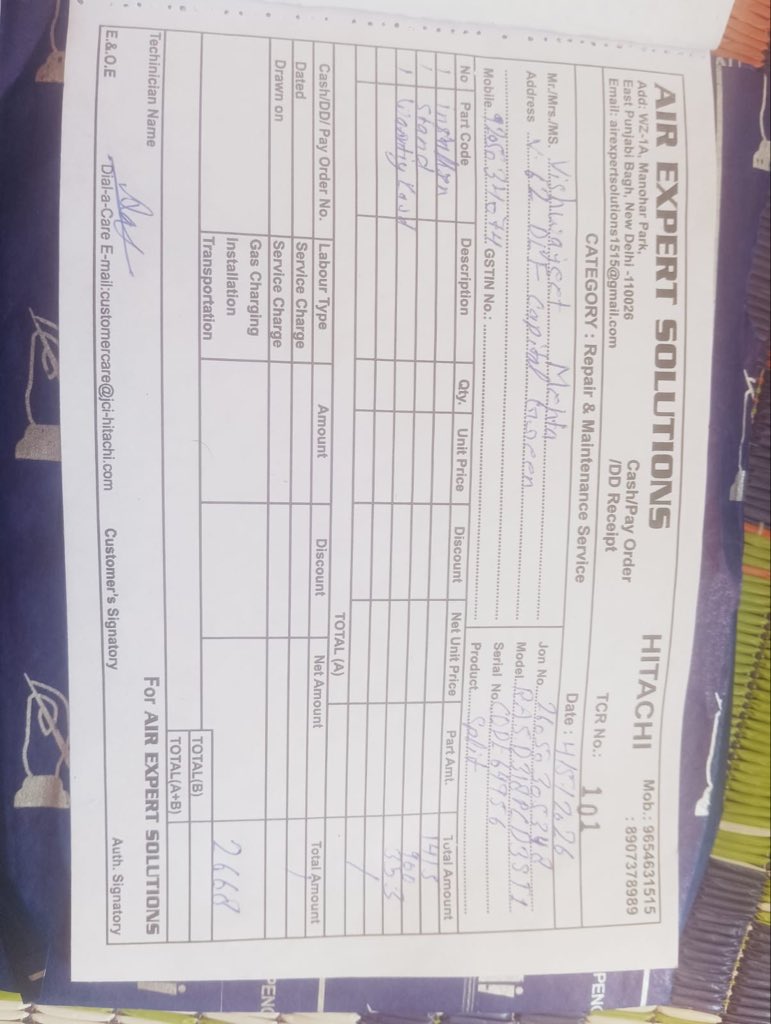 AIR EXPERT SOLUTIONS
HITACHI
Mob.: 9654631515
: 8907378989
Add: WZ-1A, Manohar Park,
East Punjabi Bagh, New Delhi -110026
Email: airexpertsolutions1515@gmail.com
Cash/Pay Order
/DD Receipt
TCR No.: 101
CATEGORY : Repair & Maintenance Service
Date : 4/5/2026
Mr./Mrs./MS. Vishwajeet Mehta
Address V-62 DLF Capital Green
Mobile GSTIN No.:
Jon No.
Model
Serial No
Product Split
No Part Code Description Qty. Unit Price Discount Net Unit Price Part Amt. Total Amount
1 1415
1 Stand 900
1 353
TOTAL (A)
Cash/DD/ Pay Order No. Labour Type Amount Discount Net Amount Total Amount
Dated Service Charge
Drawn on Service Charge
Gas Charging
Installation
Transportation
TOTAL(B)
TOTAL(A+B)
2668
Techinician Name
For AIR EXPERT SOLUTIONS
E.&.O.E Dial-a-Care E-mail:customercare@jci-hitachi.com Customer's Signatory Auth. Signatory
PENC
PENC